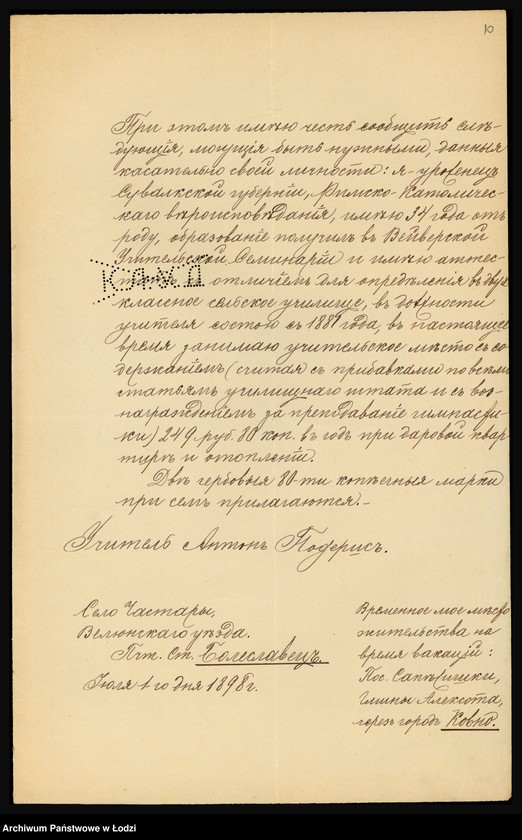 10
При этомъ имѣю честь сообщить слѣ-
дующія, могущія быть нужными, данныя
касательно своей личности: я - уроженецъ
Сувалкской губерніи, Римско-Католичес-
каго вѣроисповѣданія, имѣю 34 года отъ
роду, образованіе получилъ въ Вейверской
Учительской Семинаріи и имѣю аттес-
отличіемъ для опредѣленія въ двух
классное сельское училище, въ должности
учителя состою съ 1881 года, въ настоящее
время занимаю учительское мѣсто съ со-
держаніемъ (считая съ прибавками по всѣмъ
статьямъ училищнаго штата и съ воз-
награжденіемъ за преподаваніе гимнасти-
ки) 249 руб. 80 коп. въ годъ при даровой квар
тирѣ и отопленіи.
Двѣ гербовыя 80-ти копѣечныя марки
при семъ прилагаются.-
Учитель Антонъ Подерисъ.
Село Частары,
Велюнскаго уѣзда.
Пчт. Ст. Болеславецъ.
Іюля 1 го дня 1898 г.
Временное мое мѣсто
жительства на
время вакацій:
Пос. Сапѣжишки,
Гмины Алексота,
черезъ городъ Ковно.
Archiwum Państwowe w Łodzi